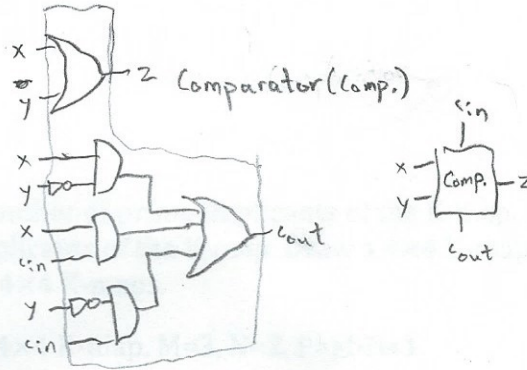 x
y
z
Comparator (Comp.)
x
y
x
cin
y
cin
cout
cin
x
y
Comp.
z
cout